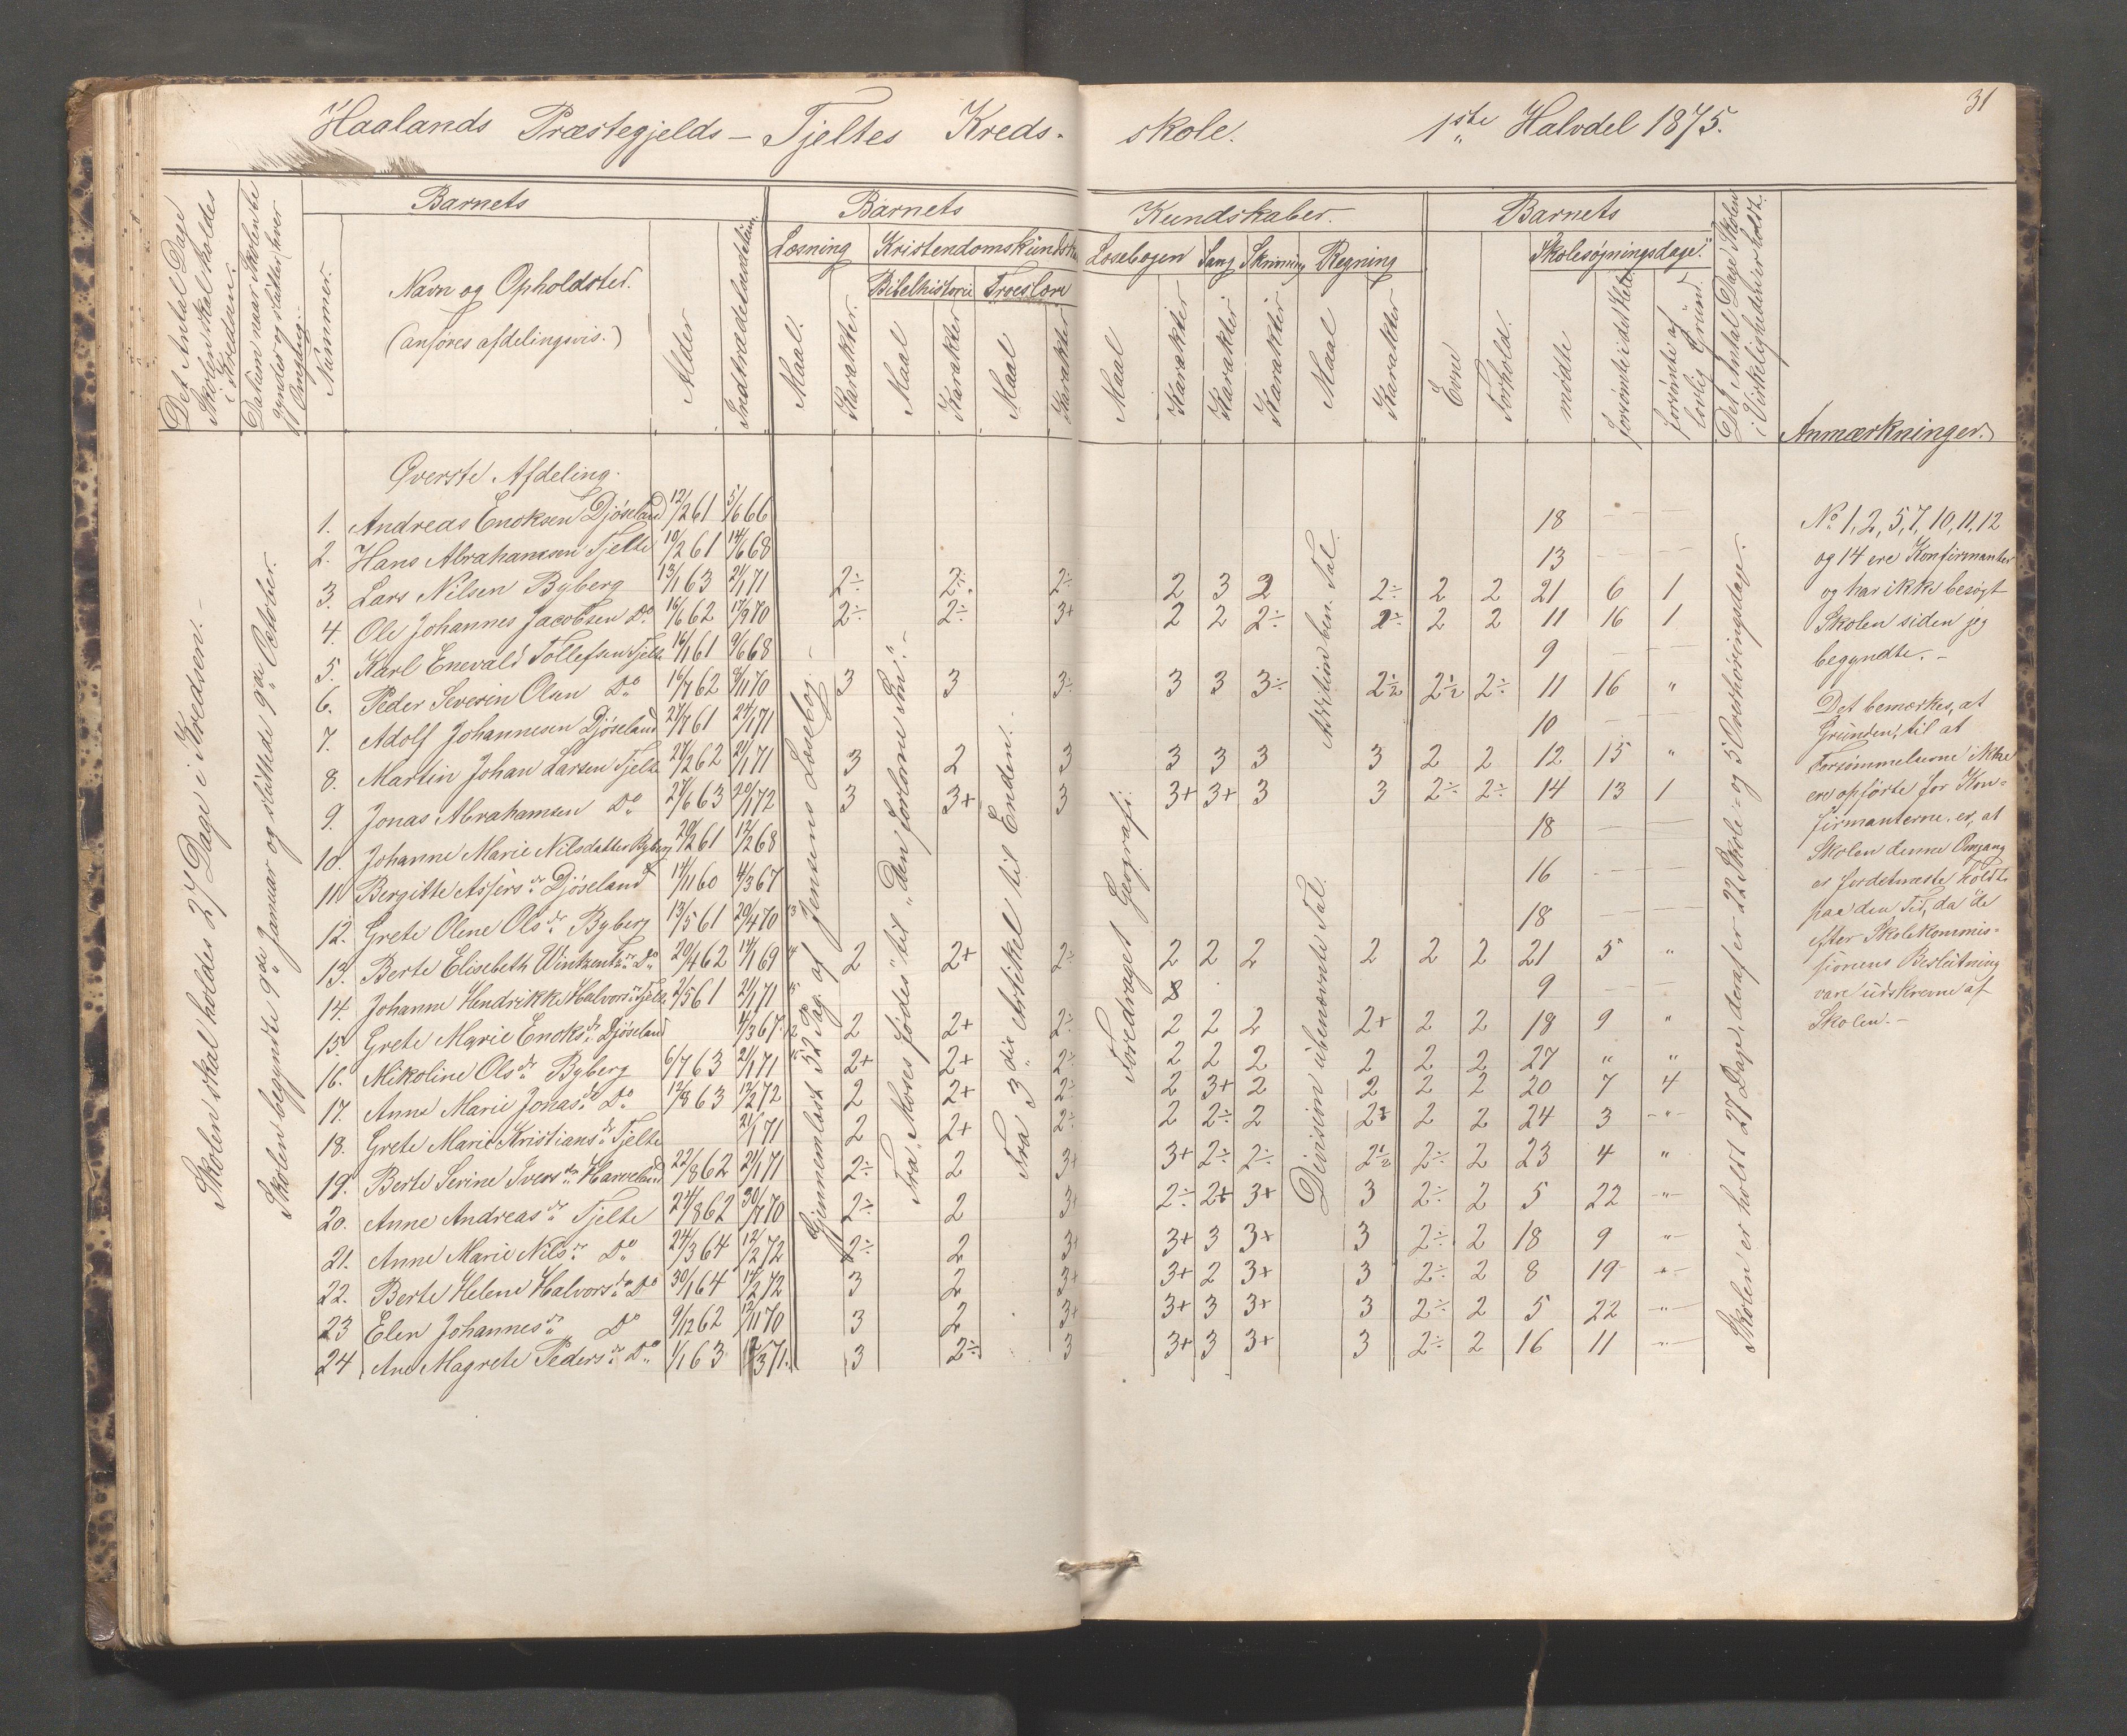 31
Haalands Præstegjelds - Tjeltes Kreds- skole. 1ste Halvdel 1875.
Det Antal Dage Skolen skal holdes i Kredsen.
Datum naar Skolen begynder og slutter hver Omgang.
Barnets
Nummer.
Navn og Opholdsted.
(anføres afdelingsvis.)
Alder
Indtrædelsesdatum.
Barnets Kundskaber.
Læsning Kristendomskundskab Læsebogen Sang Skrivning Regning
Bibelhistorie Troeslære
Maal. Karakter. Maal Karakter Maal Karakter Maal Karakter Karakter Karakter Maal Karakter
Barnets
Evne Forhold.
Skolesøgningsdage.
mødte forsømte i det Hele forsømte af lovlig Grund.
Det Antal Dage Skolen i Virkeligheden er holdt.
Anmærkninger.
Skolen skal holdes 27 Dage i Kredsen.-
Skolen begyndte 9de Januar og sluttede 9de October.
Gjennemlæst 52 Pag. af Jensens Læsebog.-
Fra "Moses fødes" til "Den forlorne Søn".-
Fra 3die Artikel til Enden.
Foredraget Geografi.
Division i ubenævnte Tal. Addition i ben. Tal.
Skolen er holdt 27 Dage, deraf er 22 Skole- og 5 Overhøringsdage.
Øverste Afdeling.
1. Andreas Enoksen Djøseland 12/2 61 5/6 66 18 - - -
2. Hans Abrahamsen Tjelte 10/2 61 14/6 68 13 - - -
3. Lars Nilsen Byberg 13/1 63 21/1 71 2÷ 2÷ 2÷ 2 3 2 2÷ 2 2 21 6 1
4. Ole Johannes Jacobsen Do 16/6 62 17/9 70 2÷ 2÷ 3+ 2 2 2÷ 2÷ 2 2 11 16 1
5. Karl Enevald Tollefsen Tjelte 16/1 61 9/6 68 9 - - -
6. Peder Severin Olsen Do 16/7 62 8/11 70 3 3 3÷ 3 3 3÷ 2½ 2½ 2÷ 11 16 "
7. Adolf Johannesen Djøseland 27/7 61 24/1 71 10 - - -
8. Martin Johan Larsen Tjelte 27/2 62 21/1 71 3 2 3 3 3 3 3 2 2 12 15 "
9. Jonas Abrahamsen Do 27/6 63 20/1 72 3 3+ 3 3+ 3+ 3 3 2÷ 2÷ 14 13 1
10. Johanne Marie Nilsdatter Byberg 20/2 61 12/2 68 18 - -
11 Bergitte Assersdr Djøseland 14/11 60 4/3 67 16 - - -
12. Grete Oline Olsdr Byberg 13/5 61 20/4 70 18 - - -
13. Berte Elisebeth Wintzentsdr Do 20/4 62 14/1 69 2 2+ 2÷ 2 2 2 2 2 2 21 5 "
14. Johanne Hendrikke Halvorsdr Tjelte 2/5 61 21/1 71 9 - -
15. Grete Marie Enoksdr Djøseland 4/3 67 2 2+ 2÷ 2 2 2 2+ 2 2 18 9 "
16. Nikoline Olsdr Byberg 6/7 63 21/1 71 2+ 2+ 2÷ 2 2 2 2 2 2 27 " "
17. Anne Marie Jonasdr Do 12/8 63 12/2 72 2 2+ 2÷ 2 3+ 2 2 2 2 20 7 4
18. Grete Marie Kristiansdr Tjelte 21/1 71 2 2+ 2÷ 2 2÷ 2 2÷ 2 2 24 3 "
19. Berte Serine Iversdr Harveland 22/8 62 21/1 71 2÷ 2 3+ 3+ 2÷ 2÷ 2½ 2÷ 2 23 4 "
20. Anne Andreasdr Tjelte 24/8 62 30/7 70 2÷ 2 3+ 2÷ 2+ 3+ 3 2÷ 2 5 22 "
21. Anne Marie Nilsdr Do 24/3 64 12/2 72 2÷ 2 3+ 3+ 3 3+ 3 2÷ 2 18 9 "
22. Berte Helene Halvorsdr Do 30/1 64 14/2 72 3 2 3+ 3+ 2 3+ 3 2÷ 2 8 19 "
23 Elen Johannesdr Do 9/12 62 12/11 70 3 2 3+ 3+ 3 3+ 3 2÷ 2 5 22 "
24 Ane Magrete Pedersdr Do 1/1 63 /3 71. 3 2÷ 3 3+ 3 3+ 3 2÷ 2 16 11 "
No 1, 2, 5, 7, 10, 11, 12
og 14 ere Konfirmanter
og har ikke besøgt
Skolen siden jeg
begyndte.-
Det bemærkes, at
Grunden, til at
Forsømmelserne ikke
ere opførte for Kon-
firmanterne, er, at
Skolen denne Omgang
er fordetmeste holdt
paa den Tid, da de
efter Skolekommis-
sionens Beslutning
vare udskrevne af
Skolen.-